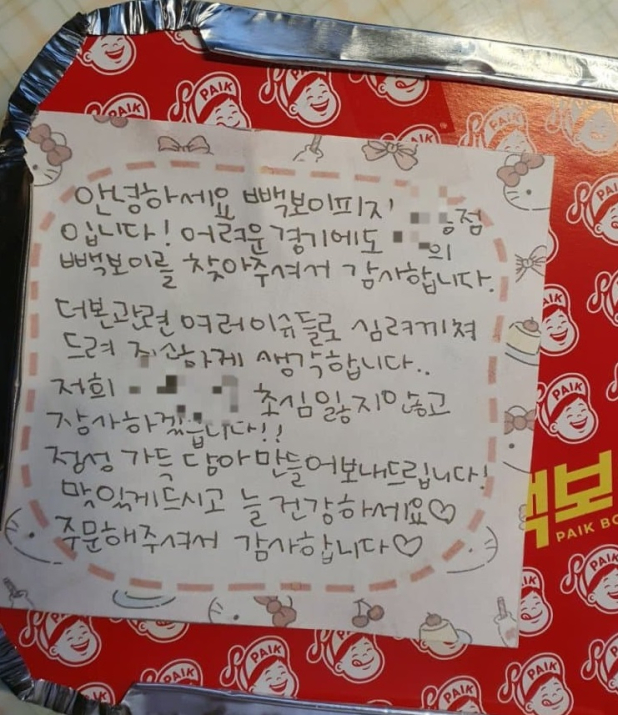 안녕하세요 빽보이피자 점
입니다! 어려운 경기에도 의
빽보이를 찾아주셔서 감사합니다.
더본관련 여러이슈들로 심려끼쳐
드려 죄송하게 생각합니다..
저희 초심잃지않고
장사하겠습니다!!
정성 가득 담아만들어보내드립니다!
맛있게드시고 늘 건강하세요♡
주문해주셔서 감사합니다♡
PAIK
PAIK
PAIK
PAIK
PAIK
PAIK
백보
PAIK BO
PAIK
PAIK
PAIK
PAIK
PAIK